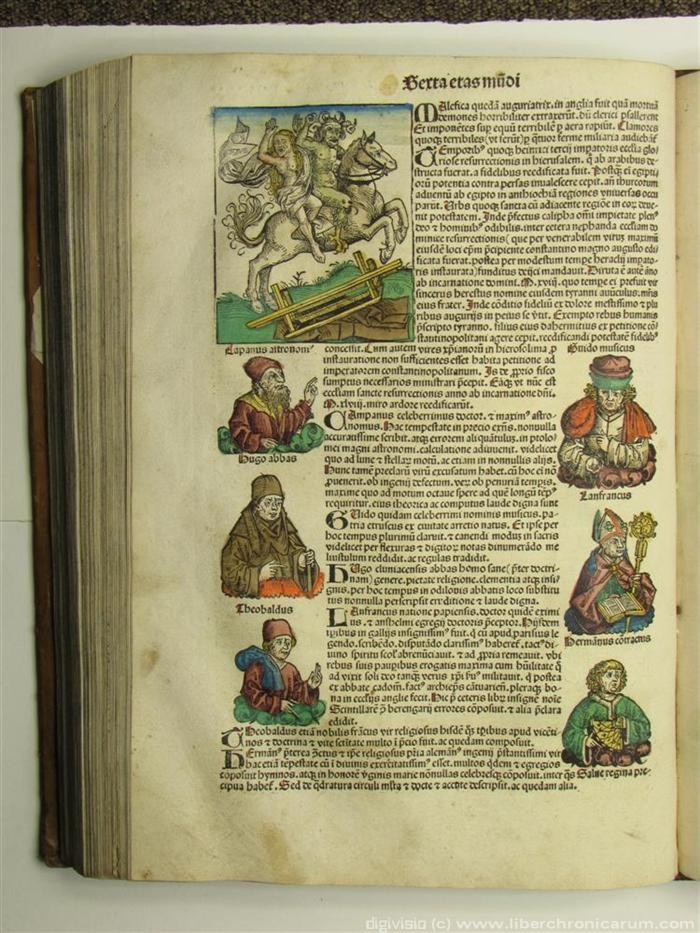 Sexta etas mũdi
Malefica quedã auguriatrix. in anglia fuit quã mortuã
demones horribiliter extraxerũt. dũ clerici psallerent
Et imponẽtes sup equũ terribilẽ ꝑ aera rapiũt. Clamores
quoqꝫ terribiles (vt ferũt) ꝑ q̃tuor ferme miliaria audiebãt̃
Temporibꝰ quoqꝫ heinrici tercij impatoris ecclia glo
riose resurrectionis in hierusalem. q̃ ab arabibus de-
structa fuerat. a fidelibus reedificata fuit. Postqꝫ em̃ egipti
orũ potentia contra persas inualescere cepit.
aduentũ ab egipto in anthiochiã regiones vniuersas occu
parũt. Urbs quoqꝫ sancta cũ adiacente regiõe in eoꝝ deue-
nit potestatem. Inde ꝓfectus calipha om̃i impietate plenꝰ
deo ⁊ hominibꝰ odibilis. inter cetera nephanda eccliam do
minice resurrectionis (que per venerabilem viruꝫ maximũ
eiusdẽ loci ep̃m p̃cipiente constantino magno augusto edi
ficata fuerat. postea per modestum tempe heraclij impato-
ris instaurata) funditus deijci mandauit. Diruta ẽ aute ãno
ab incarnatione domini. M.xviij. quo tempe ei prefuit vir
sincerus horestus nomine eiusdem tyranni auũculus. mr̃is
eius frater. Inde cõditio fideliũ ex dolore mestissimo ⁊ plu
ribus augurijs in peius se v̾tit. Exempto rebus humanis
p̃scripto tyranno. filius eius dahermitius ex petitione cõ-
stantinopolitani
Capanus astronomꝰ
concessit. Cum autem vires xp̃ianorũ in hierosolima ꝓ
Guido musicus
instauratione non sufficientes esset habita petitione ad
imperatorem constantinopolitanum. Is de ꝓprio fisco
sumptus necessarios ministrari p̃cepit. Eãqꝫ vt nũc est
eccliam sancte resurrectionis anno ab incarnatione dñi.
M.xlviij. miro ardore reedificarũt.
Campanus celeberrimus doctor. ⁊ maximꝰ astro-
nomus. Hac tempestate in precio exñs. nonnulla
accuratissime scribit. atqꝫ errorem aliquãtuluꝫ. in ptolo-
mei magni astronomi. calculatione adiuuenit. videlicet
quo ad lune ⁊ stellarꝝ motũ. ac etiam in nonnullis alijs.
Hugo abbas
Hunc tamẽ preclarũ virũ excusatum habet. cũ hoc ei nõ
ꝓuenerit. ob ingenij defectum. veꝝ ob penuriã tempis.
maxime quo ad motum octaue spere ad quẽ longũ tempꝰ
requiritur. eius theorica ac computus laude digna sunt
Lanfrancus
Guido quidam celeberrimi nominis muscus. pa-
tria etruscus ex ciuitate arretio natus. Et ipse per
hoc tempus plurimũ claruit. ⁊ canendi modũ in sacris
videlicet per flexuras ⁊ digitoꝝ notas dinumerãdo me
liustulum reddidit. ac regulas tradidit.
Hugo cluniacensis abbas homo sane (p̃ter doctri-
nam) genere. pietate religione. clementia atqꝫ insi
gnis. per hoc tempus in odilonis abbatis loco substitu
tus nonnulla perscripsit eruditione ⁊ laude digna.
Theobaldus
Lanfrancus natione papiensis. doctor quidẽ eximi
us. ⁊ anshelmi egregij doctoris p̃ceptor.
tꝑibus in gallijs insignissimꝰ fuit. q̃ cũ apud parisius le
Hermãnus cõtractus
gendo. scribẽdo. disputãdo clarissimꝰ haberet̃. tactꝰ di-
uino spiritu scol' abrenũciauit. ⁊ ad ꝓpria remeauit. vbi
rebus suis pauꝑibus erogatis maxima cum hũilitate q̃
ad vixit soli deo tanqꝫ verus xp̃i fr̃
ex abbate cadom. factꝰ archiep̃s cãtuarien̄. pleraqꝫ bo-
na in ecclesijs anglie fecit. Hic p̃ ceteris libꝝ insigne noĩe
Scintillarẽ p̃ berengarij errores cõposuit. ⁊ alia p̃clara
edidit.
Theobaldus etiã nobilis frãcus vir religiosus hisdẽ q̃s tꝑibus apud vicẽti-
nos ⁊ doctrina ⁊ vite sctitate multo ĩ p̃cio fuit. ac quedam composuit.
Hermãnꝰ p̃terea
hac etiã tẽpestate cũ ĩ diuinis exercitatissimꝰ esset. multos q̃dem ⁊ egregios
cõposuit hymnos. atqꝫ in honorẽ v̾ginis marie nõnullas celebresqꝫ cõposuit. inter q̃s Salue regina pre-
cipua habet̃. Sed de q̃dratura circuli
digivisio (c) www.liberchronicarum.com